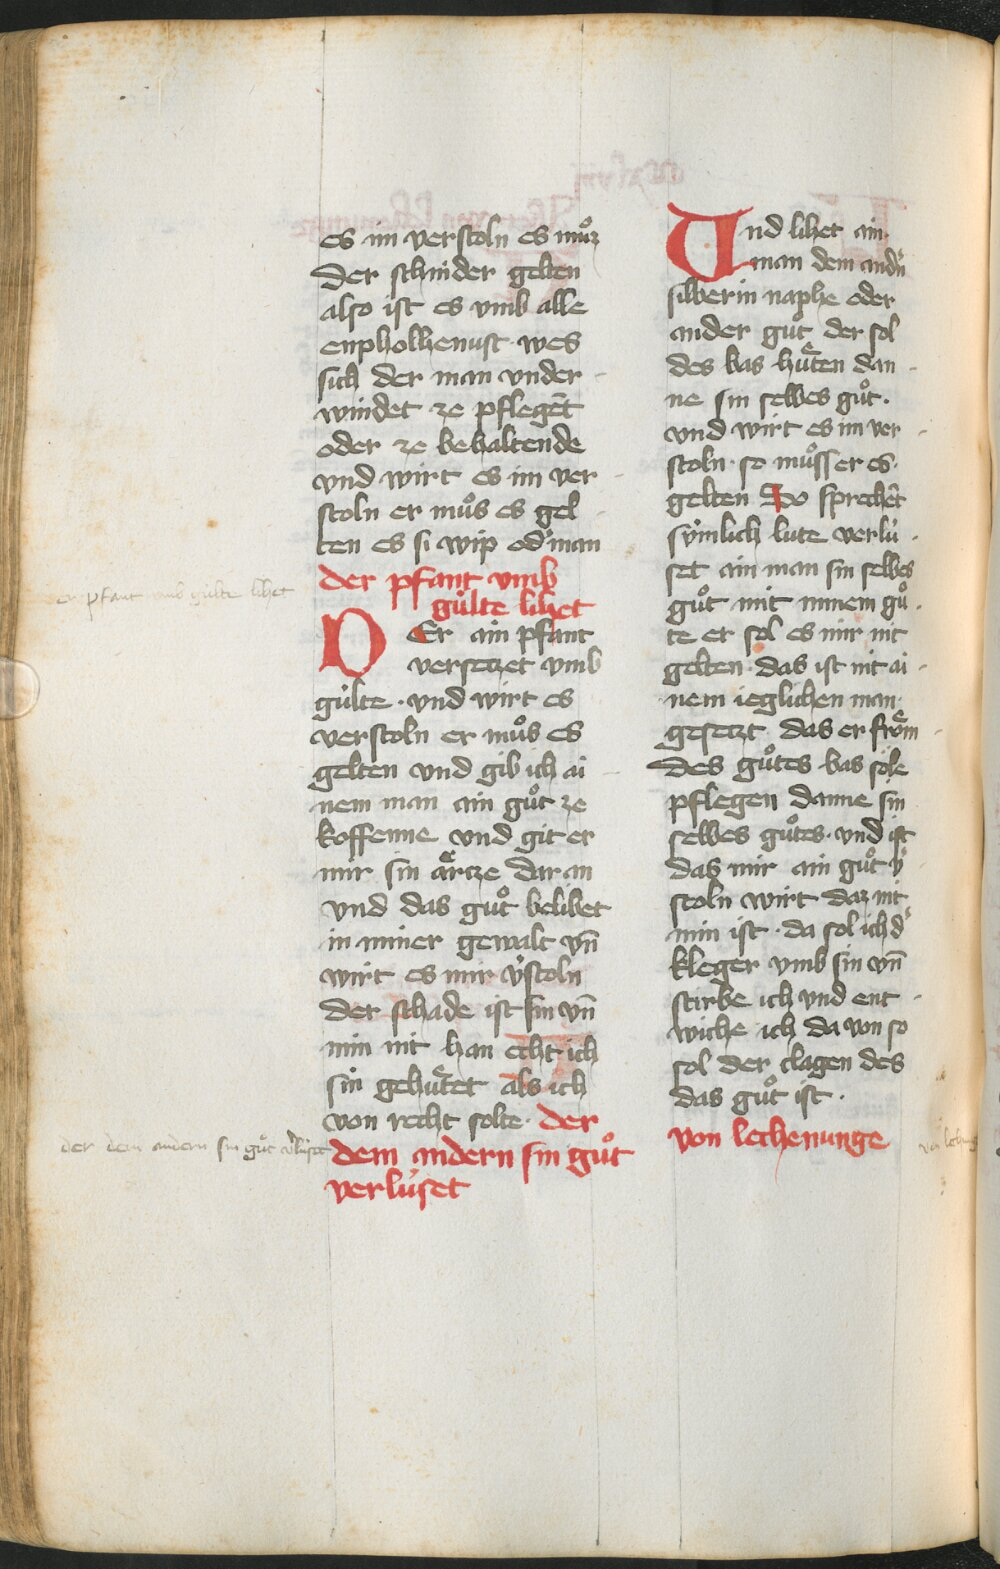 es im verstoln es mu̍oz
der schnider gelten
also ist es vmb alle
enpholhenust · wes
sich der man vnder-
windet ze pflegēt
oder ze behaltende
vnd wirt es im ver-
stoln er muͦs es gel-
ten es si wip od' man
der pfant vmb
gu̍lte lihet
er pfant vmb gulte lihet
DEr ain pfant
versetzet vmb
gu̍lte · vnd wirt es
verstoln er muͦs es
gelten vnd gib ich ai-
nem man ain guͦt ze
koffenne vnd git er
mir sin aͤrtze dar an
vnd das guͦt belibet
in miner gewalt vn̄
wirt es mir v'stoln
der schade ist sin vn̄
min nit han echt ich
sin gehuͤtet als ich
von recht solte · der
dem andern sin guͦt
verlu̍set
der dem andern sin guͦt v'lu̍set
Vnd lihet ain
man dem andn̄
silberin naphe oder
ander guͦt der sol
des bas huͤten dan-
ne sin selbes guͦt ·
vnd wirt es im ver-
stoln · so muͦss er es ·
gelten So sprechēt
sy̍mlich lute verlu̍-
set ain man sin selbes
guͦt mit minem guͦ-
te er sol es mir nit
gelten · das ist nit ai-
nem ieglichen man
gesetzt das er froͤm-
des guͦtes bas sole
pflegen danne sin
selbes guͦtes · vnd ist
das mir ain guͦt v'-
stoln wirt daz nit
min ist · da sol ich d'
kleger vmb sin vn̄
stirbe ich vnd ent-
wiche ich da von so
sol der clagen des
das guͦt ist ·
von lechenunge